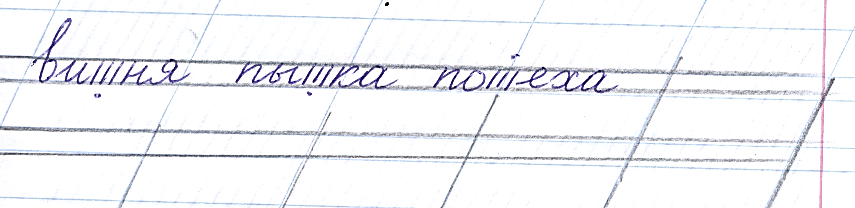 вишня пышка потеха